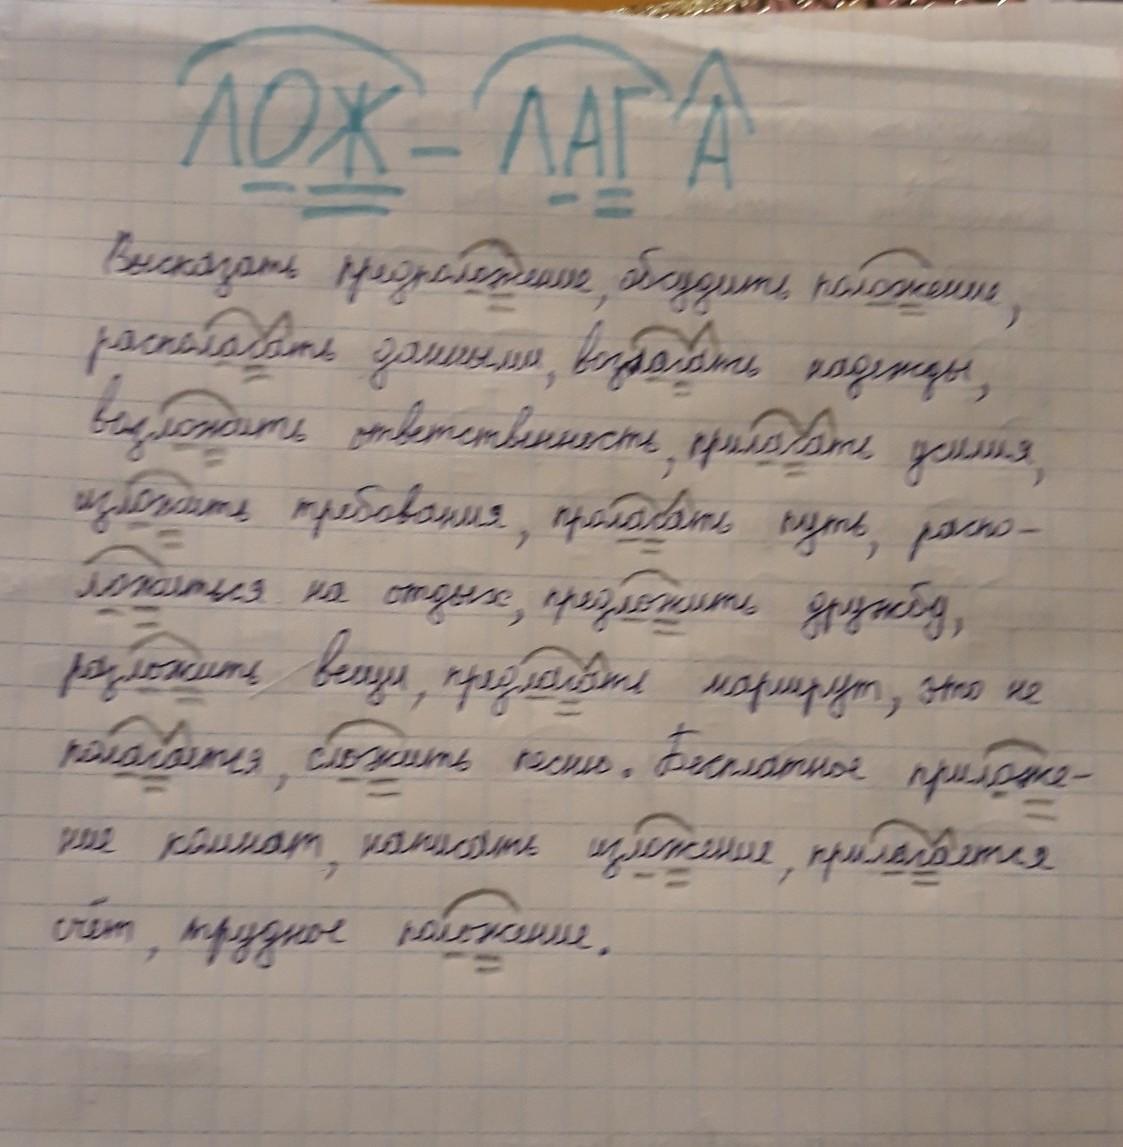 ЛОЖ - ЛАГА
Высказать предположение, обсудить положение,
располагать данными, возлагать надежды,
возложить ответственность, прилагать усилия,
изложить требования, пролагать путь, распо-
ложиться на отдых, предложить дружбу,
разложить вещи, предлагать маршрут, это не
полагается, сложить песню. Бесплатное приложе-
ние комнат, написать изложение, прилагается
счёт, трудное положение.